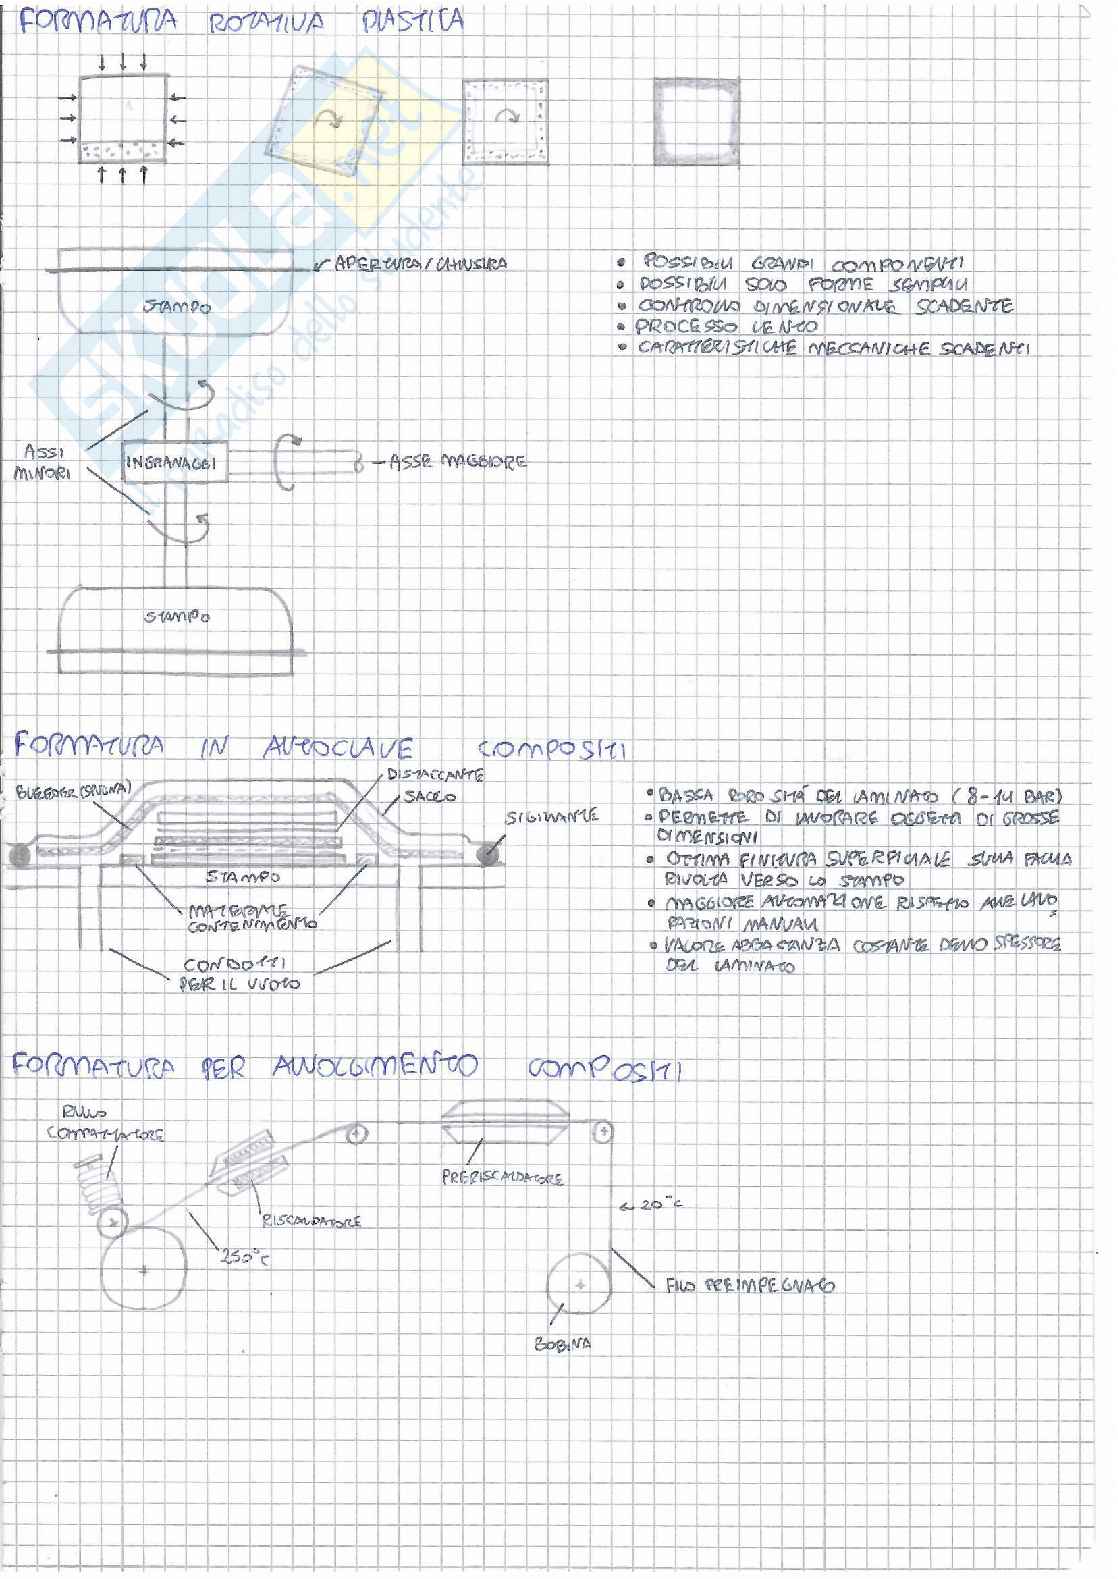 FORMATURA ROTATIVA PLASTICA
SKUOLA.net
paradiso dello studente
APERTURA/CHIUSURA
STAMPO
• POSSIBILI GRANDI COMPONENTI
• POSSIBILI SOLO FORME SEMPLICI
• CONTROLLO DIMENSIONALE SCADENTE
• PROCESSO LENTO
• CARATTERISTICHE MECCANICHE SCADENTI
ASSI
MINORI
INGRANAGGI
ASSE MAGGIORE
STAMPO
FORMATURA IN AUTOCLAVE COMPOSITI
BLEEDER (SPUGNA)
DISTACCANTE
SACCO
SIGILLANTE
STAMPO
MATERIALE
CONTENIMENTO
CONDOTTI
PER IL VUOTO
• BASSA POROSITÀ DEL LAMINATO (8-14 BAR)
• PERMETTE DI LAVORARE OGGETTI DI GROSSE
DIMENSIONI
• OTTIMA FINITURA SUPERFICIALE SULLA FACCIA
RIVOLTA VERSO LO STAMPO
• MAGGIORE AUTOMAZIONE RISPETTO ALLE LAVO
RAZIONI MANUALI
• VALORE ABBASTANZA COSTANTE DELLO SPESSORE
DEL LAMINATO
FORMATURA PER AVVOLGIMENTO COMPOSITI
RULLO
COMPATTATORE
RISCALDATORE
250°C
PRERISCALDATORE
20°C
FILO PREIMPEGNATO
BOBINA